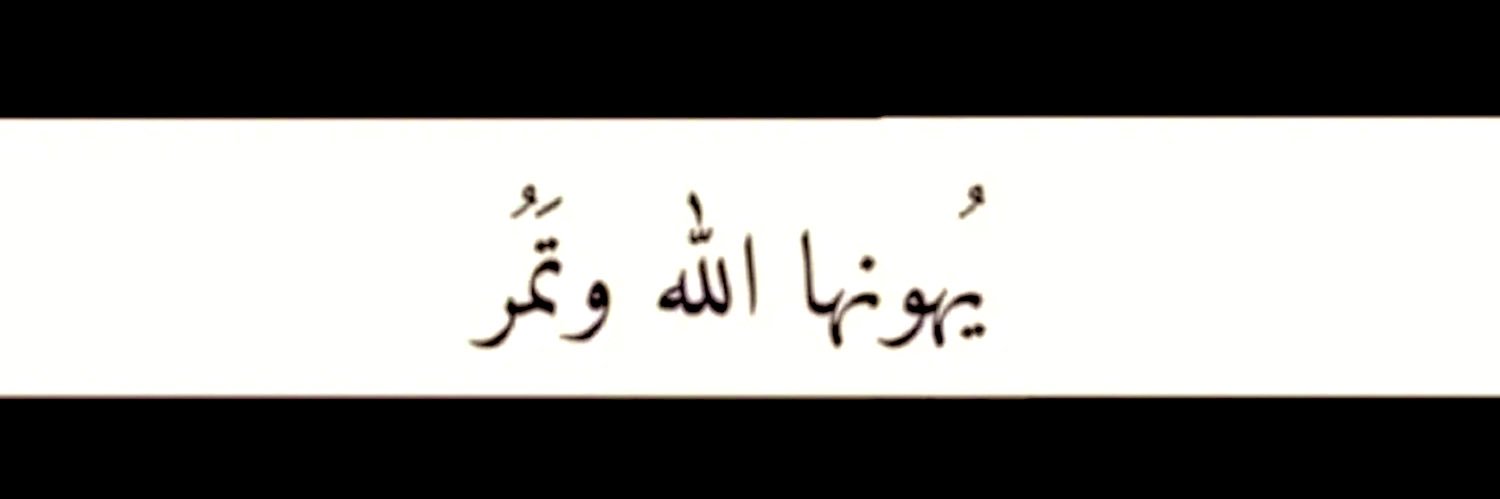 يُهونها اللّٰه وتَمُر